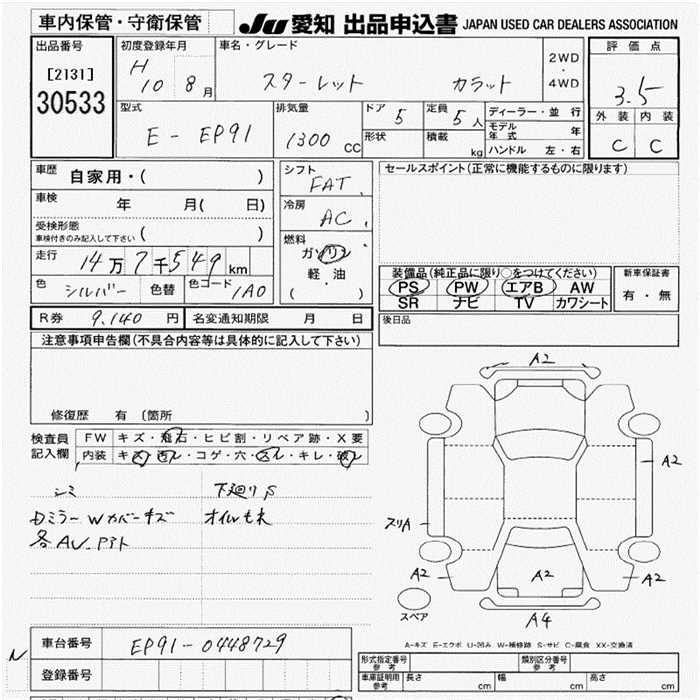 車内保管・守衛保管
JU 愛知 出品申込書 JAPAN USED CAR DEALERS ASSOCIATION
出品番号
[2131]
30533
初度登録年月
H 10 8月
車名・グレード
スターレット カラット
2WD
・
4WD
評価点
3.5
外装 内装
C C
型式
E-EP91
排気量
1300 cc
ドア 5
形状
定員 5人
積載 kg
ディーラー・並行
モデル年式 年
ハンドル 左・右
車歴 自家用・( )
車検 年 月( 日)
受検形態
車検付きのみ記入して下さい ( )
走行 14万7千549km
色 シルバー 色替 色コード 1A0
シフト
FAT
冷房
AC
燃料
ガソリン
軽・油
( )
セールスポイント(正常に機能するものに限ります)
装備品(純正品に限り○をつけてください)
PS PW エアB AW
SR ナビ TV カワシート
新車保証書
有・無
後日品
R券 9,140 円 名変通知期限 月 日
注意事項申告欄(不具合内容等は具体的に記入して下さい)
修復歴 有 (箇所
検査員
記入欄
FW キズ・飛石・ヒビ割・リペア跡・X要
内装 キズ・汚レ・コゲ・穴・スレ・キレ・破レ
シミ 下廻りS
Dミラー Wカバーキズ オイルもれ
各AV.アト
A2
A2
スリA
A2
A2
A2
A4
スペア
A-キズ E-エクボ U-凹み W-補修跡 S-サビ C-腐食 XX-交換済
N
車台番号 EP91-0448729
登録番号
形式指定番号
参考
類別区分番号
参考
車庫証明用
参考
長さ cm 幅 cm 高さ cm
30533